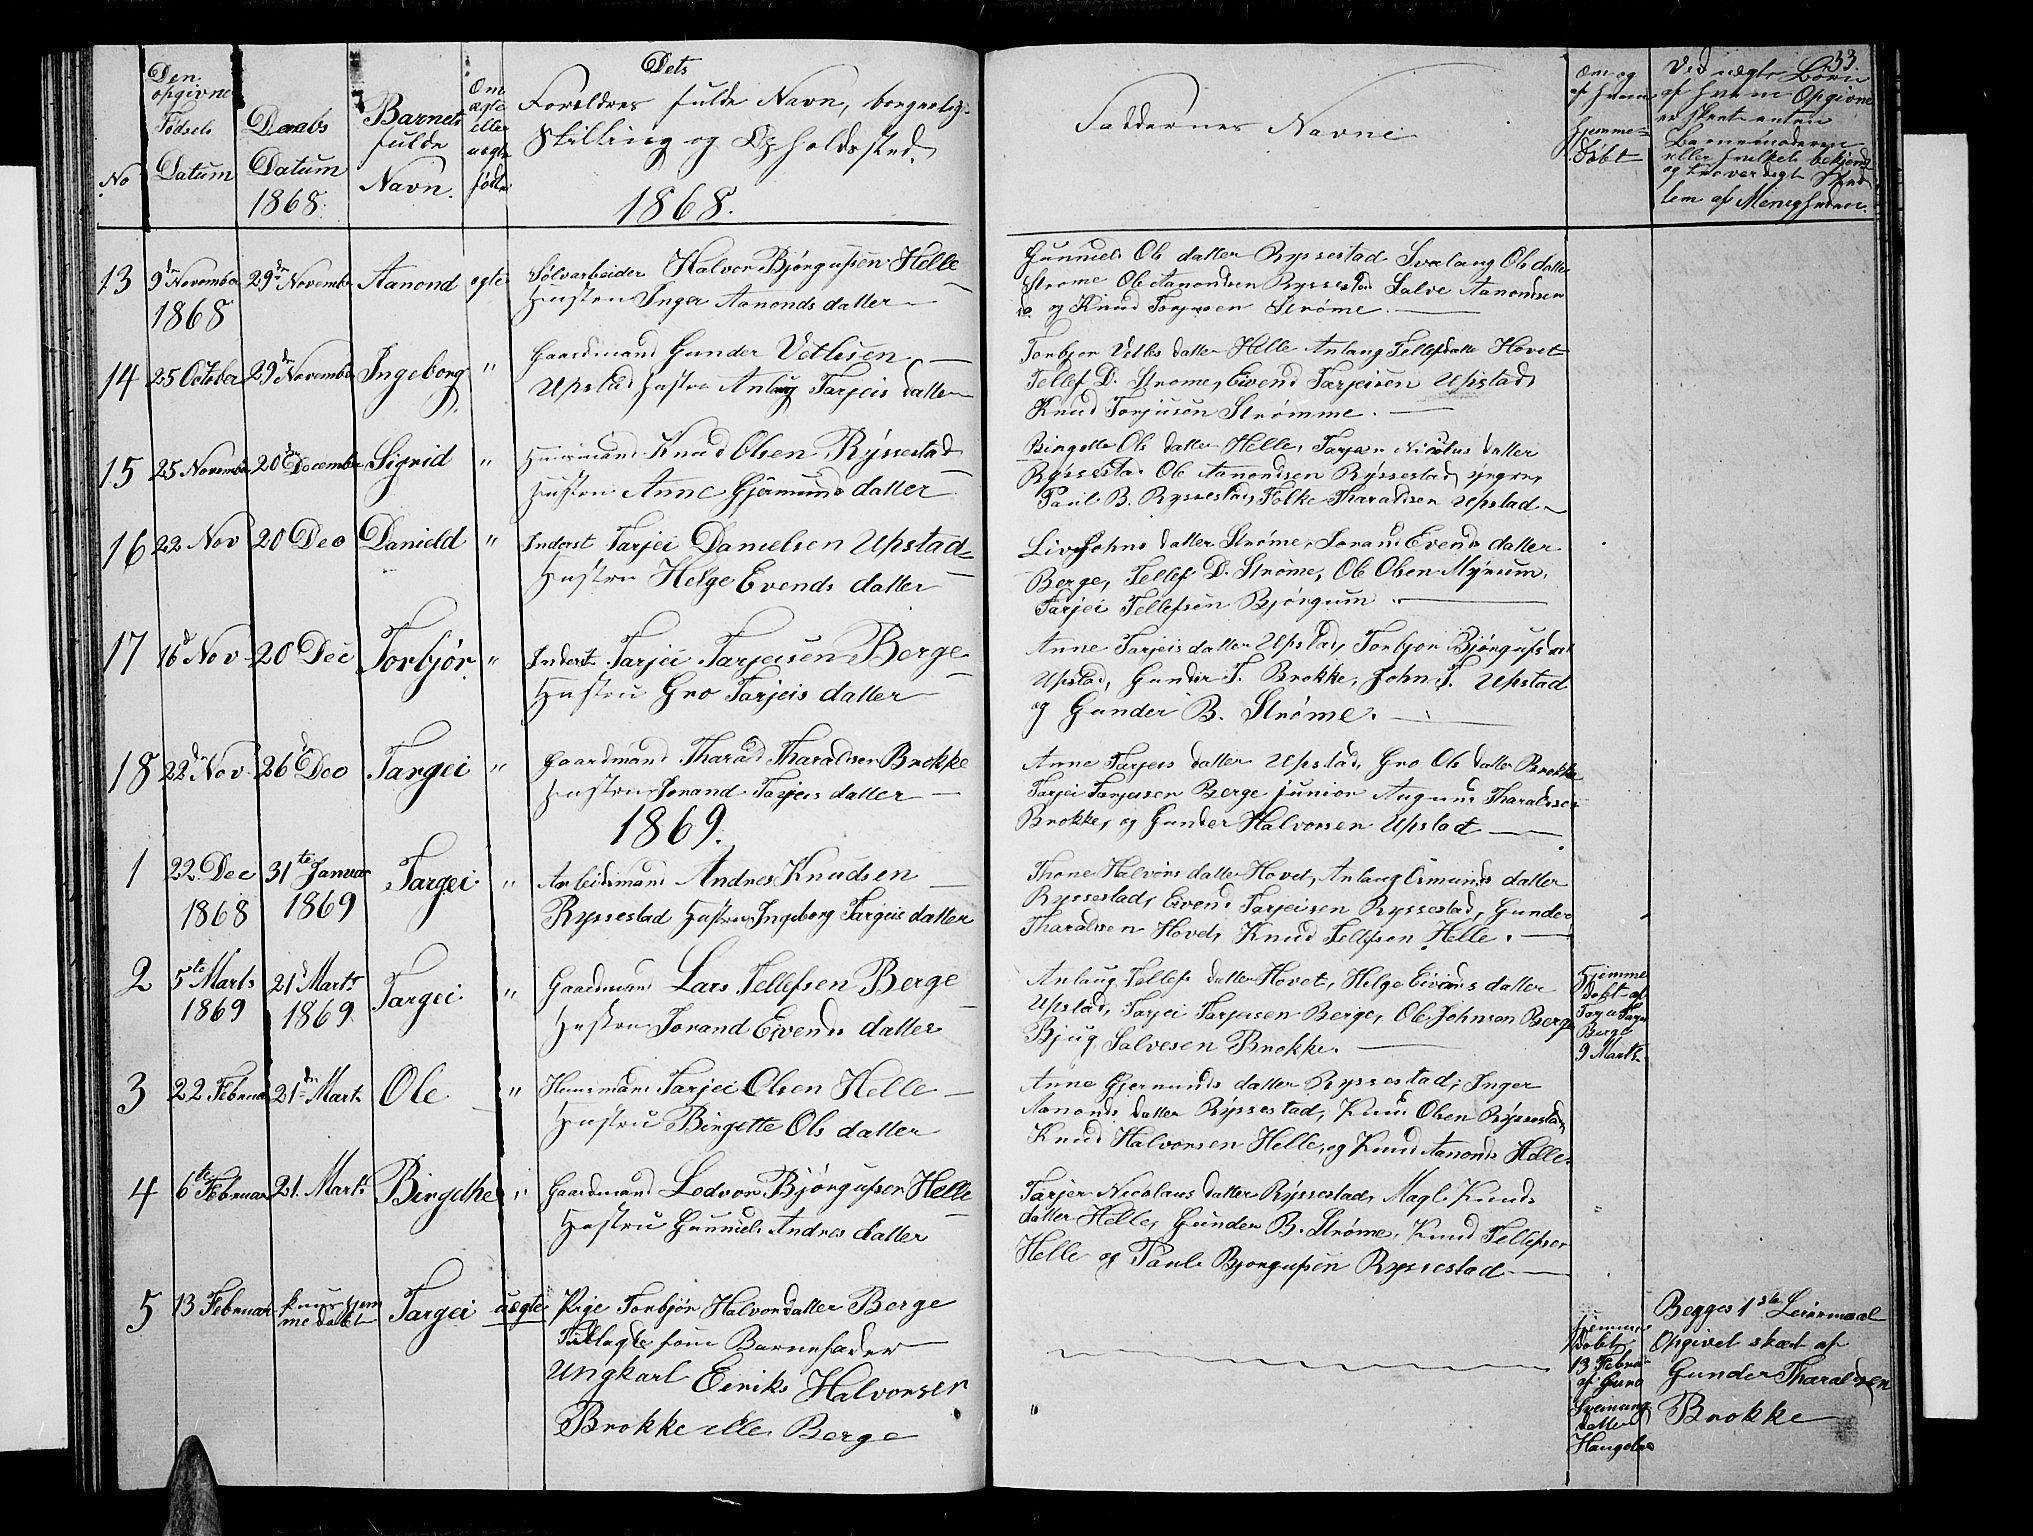 33.
No
Den opgivne Fødsels Datum
Daabs Datum 1868.
Barnets fulde Navn.
Om ægte eller uægte fødte
Dets
Forældres fulde Navn, borgerlig
Stilling og Opholdssted.
1868.
Faddernes Navne
Om og af hvem Hjemme-døbt
Ved uægte Børn
af hvem Opgivne
er skeet enten
Barnemoderen
eller hvilket bekjendt
og troverdigt Med
lem af Menigheden.
13 9de November 1868 29de Novembr Aanond egte
Sølvarbeider Halvor Bjørgufsen Helle
Hustru Inger Aanonds datter
Gunnild Ols datter Ryssestad Svalaug Ols datter
Strøme Ole Aanondsen Ryssestad Salve Aanondsen
do. og Knud Torjusen Strøme.
14 25 October 29de Novembr Ingeborg "
Gaardmand Gunder Vetlesen
Upstad Hustru Anlaug Tarjeis datter
Torbjør Vetles datter Helle Anlaug Tellefsdatte Hovet
Tellef D. Strøme, Eivend Tarjeisen Upstad
Knud Torjusen Strømme.
15 25 November 20de December Sigrid "
Huusmand Knud Olsen Ryssestad
Hustru Anne Gjermunds datter
Birgitte Ols datter Helle, Tarjer Nicolus datter
Ryssestad Ole Aanondsen Ryssestad yngre,
Paul B. Ryssestad, Folke Tharaldsen Upstad
16 22 Nov 20 Dec Danield "
Inderst Tarjei Danielsen Upstad
Hustru Helge Evends datter
Liv Johns datter Strøme, Jorand Evends datter
Berge, Tellef D. Strøme, Ole Olsen Myrum,
Tarjei Tellefsen Bjørgum.
17 16d Nov 20 Dec Torbjør. "
Inderst Tarjei Tarjeisen Berge
Hustru Gro Tarjeis datter
Anne Tarjeis datter Upstad, Torbjør Bjørgufs dat
Upstad, Gunder T. Brokke, John T. Upstad
og Gunder B. Strøme.
18 22d Nov 26d Dec Targei "
Gaardmand Tharald Tharaldsen Brokke
Hustru Jorand Tarjeis datter
Anne Tarjeis datter Upstad, Gro Ols datter Brokke
Tarjei Tarjeisen Berge junior Augund Tharaldsen
Brokke, og Gunder Halvorsen Upstad
1869.
1 22 Dec 1868 31te Januar 1869 Targei "
Arbeidsmand Andres Knudsen
Ryssestad Hustru Ingeborg Targeis datter
Thone Halvors datter Hovet, Anlaug Osmunds datter
Ryssestad, Eivend Tarjeisen Ryssestad, Gunder
Tharaldsen Hovet, Knud Tellefsen Helle.
2 5te Marts 1869 21d Marts 1869 Targei "
Gaardmand Lars Tellefsen Berge
Hustru Jorand Evends datter
Anlaug Tellefs datter Hovet, Helge Eivends datter
Upstad, Tarjei Tarjeisen Berge, Ole Johnsen Berge
Bjug Salvesen Brokke.
Hjemme
døbt af
Tarjei Tarjei
Berge
9 Marts
3 22 Februar 21de Marts Ole "
Huusmand Tarjei Olsen Helle
Hustru Birgitte Ols datter
Anne Gjermunds datter Ryssestad, Inger
Aanonds datter Ryssestad, Knud Olsen Ryssestad
Knud Halvorsen Helle, og Knud Aanonds Helle.
4 6te Februar 21. Marts Birgithe "
Gaardmand Lodvor Bjørgufsen Helle
Hustru Gunnild Andres datter
Tarjer Nicolaus datter Ryssestad, Magli Knuds
datter Helle, Gunder B. Strøme, Knud Tellefsen
Helle og Paul Bjørgufsen Ryssestad
5 13 Februar kuns hjem
me døbt Targei uægte
Pige Torbjør Halvorsdatter Berge
Udlagte som Barnefader
Ungkarl Eeriks Halvorsen
Brokke elle Berge
Hjemme
døbt
13 Februar
af Guro
Svenung
datter
Haugelie
Begges 1ste Leiermaal
Opgivet skeet af
Gunder Tharaldsen
Brokke